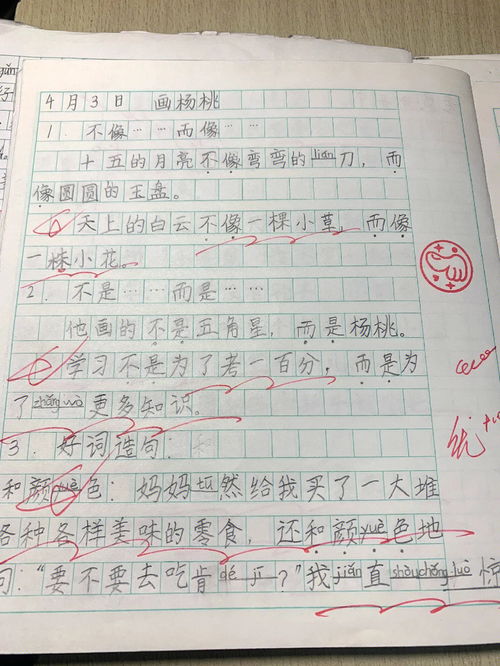 4月3日 画杨桃
1. 不像……而像……
十五的月亮不像弯弯的lián刀，而
像圆圆的玉盘。
天上的白云不像一棵小草，而像
一株小花。
2. 不是……而是……
他画的不是五角星，而是杨桃。
学习不是为了考一百分，而是为
了zhǎng wò更多知识。
3. 好词造句：
和颜yuè色：妈妈 然给我买了一大堆
各种各样美味的零食，还和颜yuè色地
问：“要不要去吃肯dé jī？”我jiǎn直shòu chǒng 惊
优